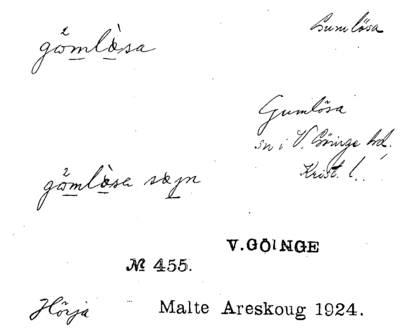 Gumlösa
gωmlὼsa
Gumlösa
sn i V. Göinge hd.
Krist. l.
gωmlὼsa sæɲn
V. GÖINGE
№ 455.
Hörja
Malte Areskoug 1924.